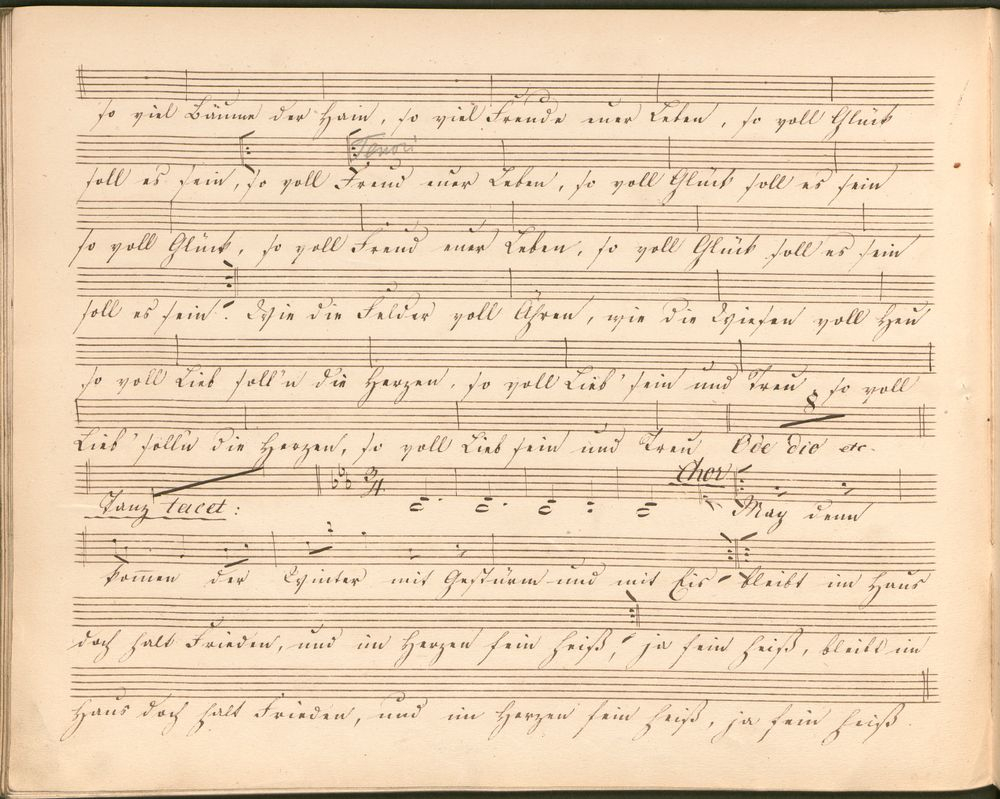 so viel Bäume der Hain, so viel Freude euer Leben, so voll Glück
Tenori
soll es sein, so voll Freud euer Leben, so voll Glück soll es sein
so voll Glück, so voll Freud euer Leben, so voll Glück soll es sein
soll es sein. Wie die Felder voll Ähren, wie die Wiesen voll Heu
so voll Lieb soll'n die Herzen, so voll Lieb' sein und Treu, so voll
Lieb' soll'n die Herzen, so voll Lieb sein und Treu die etc.
Tanz tacet: Chor Mag denn
kom̅en der Winter mit Gestürm und mit Eis bleibt im Haus
doch halt Frieden, und im Herzen sein heiß, ja sein heiß, bleibt im
Haus doch halt Frieden, und im Herzen sein heiß, ja sein heiß.